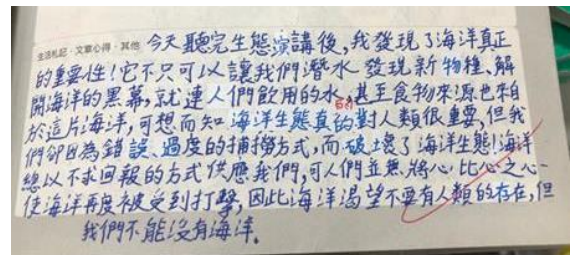 生活札記·文章心得·其他 今天聽完生態演講後,我發現了海洋真正
的重要性!它不只可以讓我們潛水發現新物種、解
開海洋的黑幕,就連人們飲用的水,甚至食物來源也來自
於這片海洋,可想而知海洋生態真的對人類很重要,但我
們卻因為錯誤、過度的捕撈方式,而破壞了海洋生態!海洋
總以不求回報的方式供應我們,可人們並無將心比心之心,
使海洋再度被受到打擊,因此海洋渴望不要有人類的存在,但
我們不能沒有海洋。